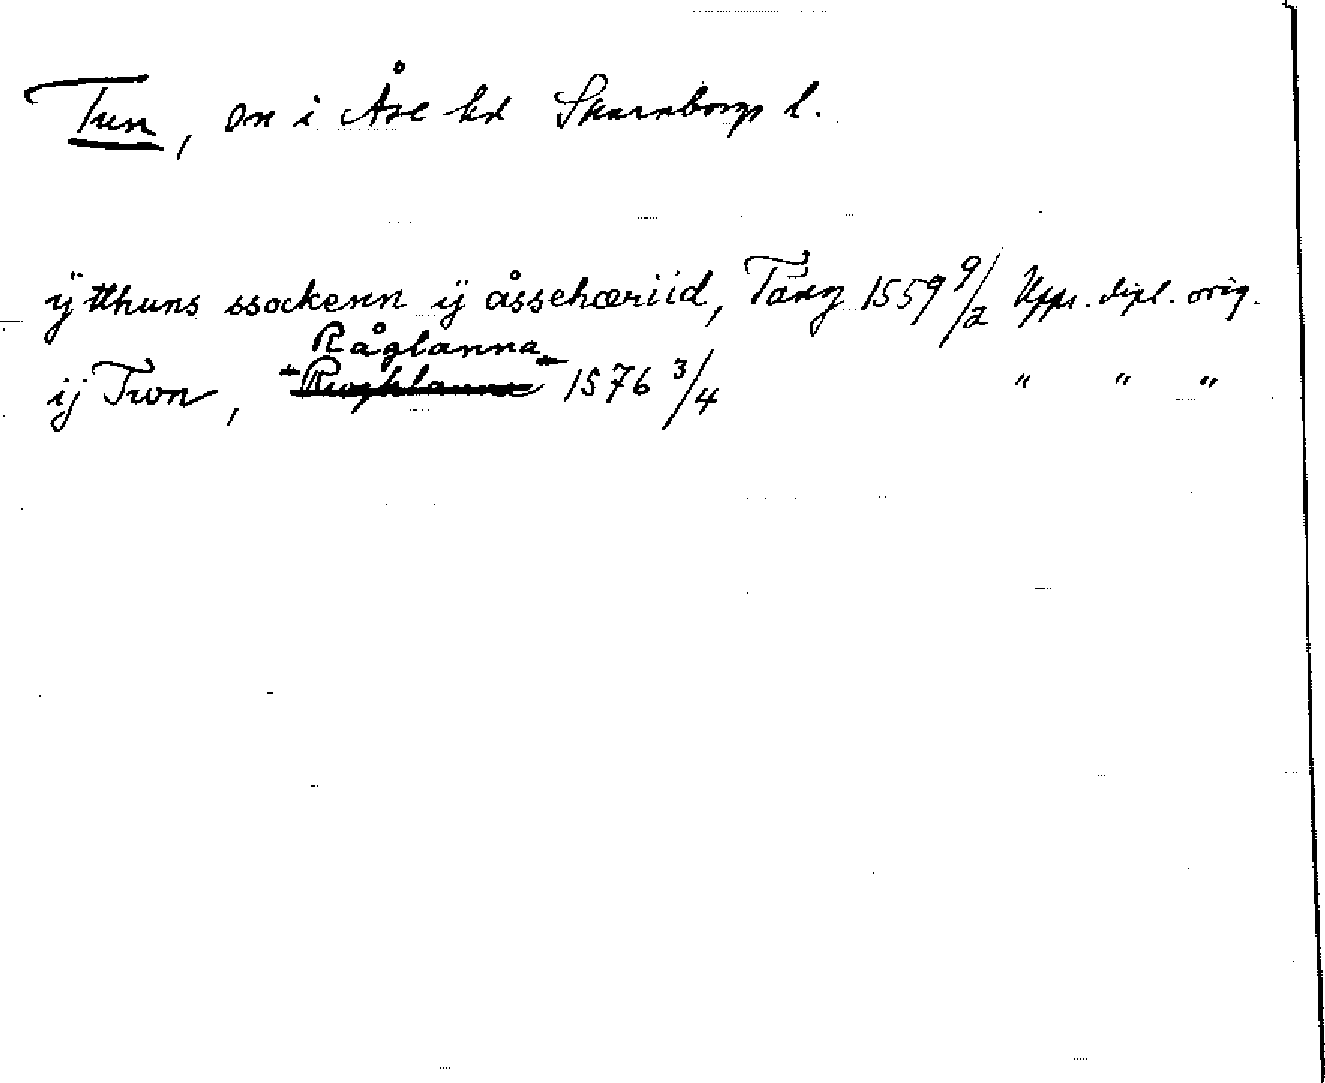 Tun, sn i Åse hd Skaraborgs l.
ÿ tthuns ssockenn ÿ åssehæriid, Tång 1559 9/2 Upps. dipl. orig.
Råglanna
ij Twn, 1576 3/4 " " "